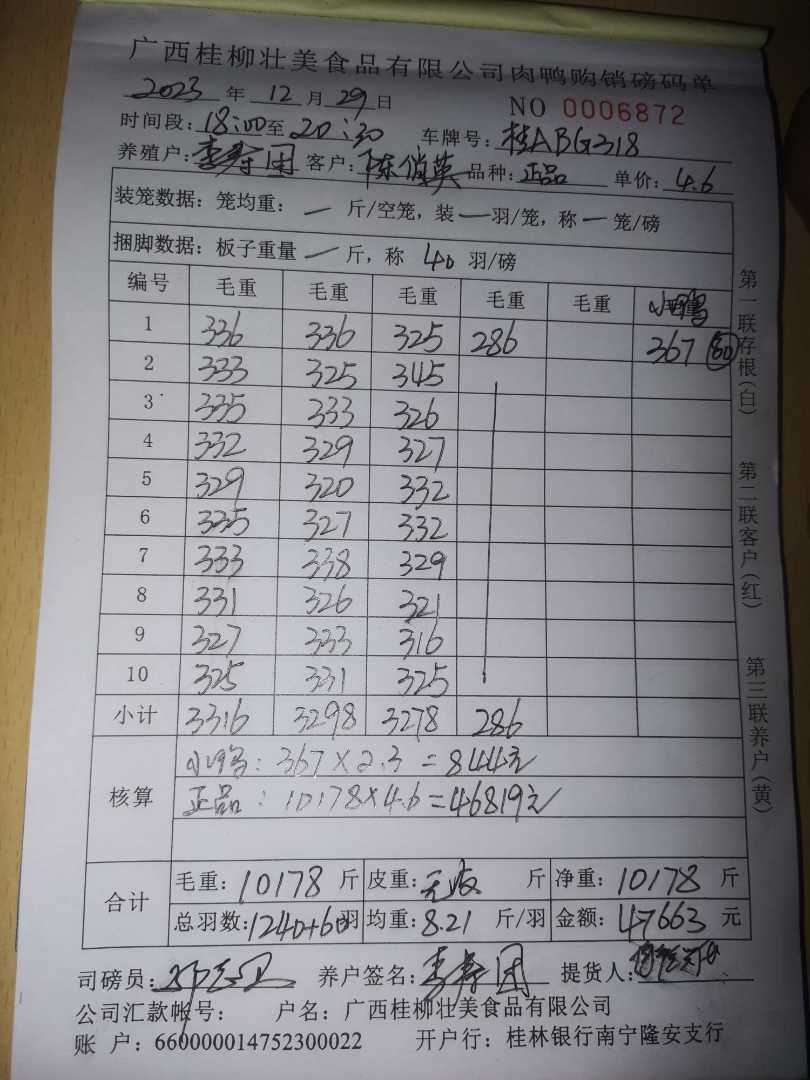 广西桂柳壮美食品有限公司肉鸭购销磅码单
2023 年 12 月 29 日 NO 0006872
时间段: 18:00 至 20:30 车牌号: 桂ABG318
养殖户: 李寿团 客户: 陈俏英 品种: 正品 单价: 4.6
装笼数据: 笼均重: — 斤/空笼, 装 — 羽/笼, 称 — 笼/磅
捆脚数据: 板子重量 — 斤, 称 40 羽/磅
编号 毛重 毛重 毛重 毛重 毛重 小鸭
1 336 336 325 286 367 60
2 333 325 345
3 335 333 326
4 332 329 327
5 329 320 332
6 335 327 332
7 333 338 329
8 331 326 321
9 327 333 316
10 325 331 325
小计 3316 3298 3278 286
核算
小鸭: 367×2.3=844元
正品: 10178×4.6=46819元
合计
毛重: 10178 斤 皮重: 无皮 斤 净重: 10178 斤
总羽数: 1240+60 羽 均重: 8.21 斤/羽 金额: 47663 元
司磅员: 养户签名: 李寿团 提货人:
公司汇款帐号: 户名: 广西桂柳壮美食品有限公司
账 户: 660000014752300022 开户行: 桂林银行南宁隆安支行
第一联存根(白)
第二联客户(红)
第三联养户(黄)